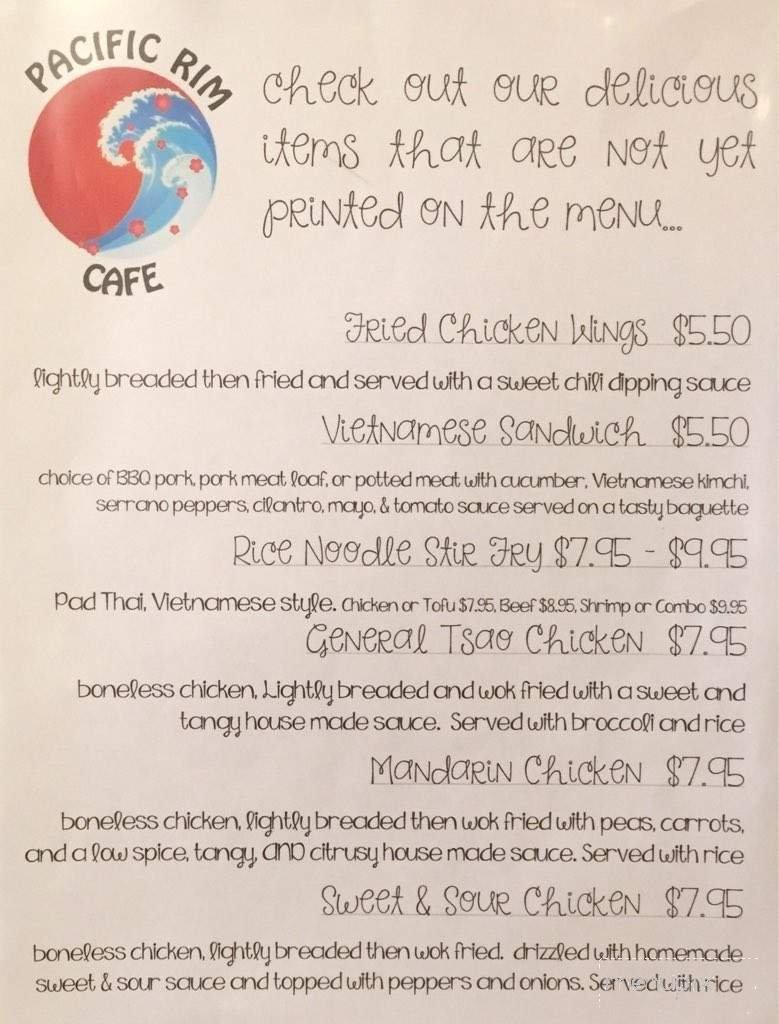 PACIFIC RIM
CAFE
Check out our delicious
items that are not yet
printed on the menu...
Fried Chicken Wings $5.50
lightly breaded then fried and served with a sweet chili dipping sauce
Vietnamese Sandwich $5.50
choice of BBQ pork, pork meat loaf, or potted meat with cucumber, Vietnamese kimchi,
serrano peppers, cilantro, mayo, & tomato sauce served on a tasty baguette
Rice Noodle Stir Fry $7.95 - $9.95
Pad Thai, Vietnamese style. Chicken or Tofu $7.95, Beef $8.95, Shrimp or Combo $9.95
General Tsao Chicken $7.95
boneless chicken, Lightly breaded and wok fried with a sweet and
tangy house made sauce. Served with broccoli and rice
Mandarin Chicken $7.95
boneless chicken, lightly breaded then wok fried with peas, carrots,
and a low spice, tangy, AND citrusy house made sauce. Served with rice
Sweet & Sour Chicken $7.95
boneless chicken, lightly breaded then wok fried. drizzled with homemade
sweet & sour sauce and topped with peppers and onions. Served with rice